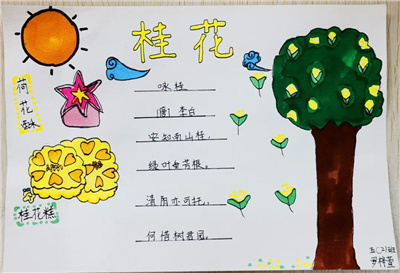 桂花
荷花酥
桂花糕
咏桂
(唐) 李白
安知南山桂,
绿叶垂芳根。
清阴亦可托,
何惜树君园。